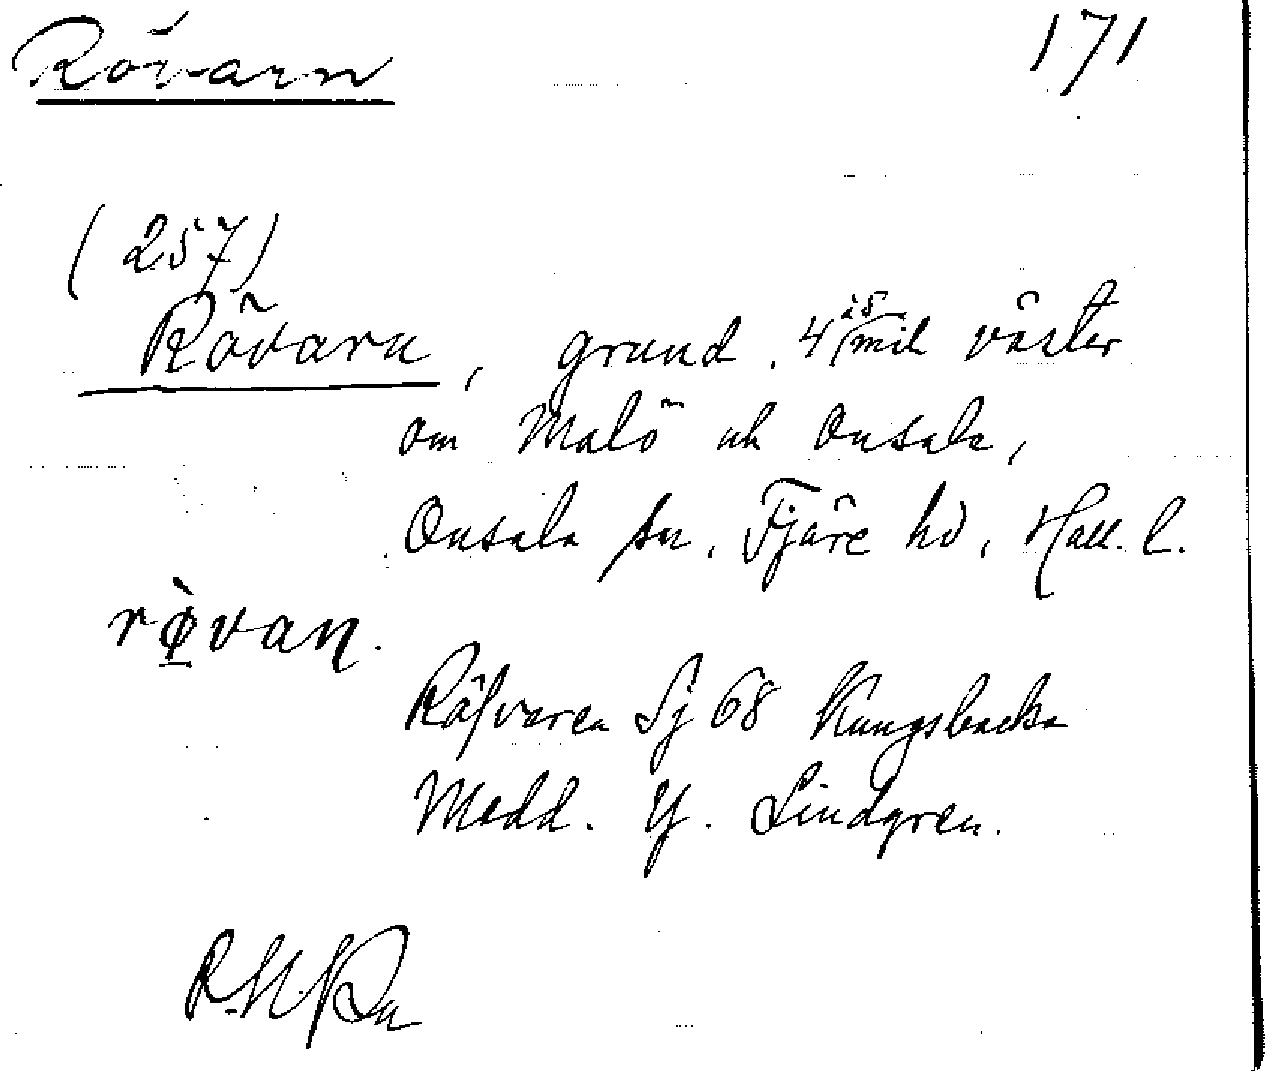 Rövarn 171
(257)
Rövarn, grund, 4 mil väster
om Malö och Onsala,
Onsala sn, Fjäre hd, Hall. l.
Räfvaren Sj 68 Kungsbacka
Medd. Y. Lindgren.